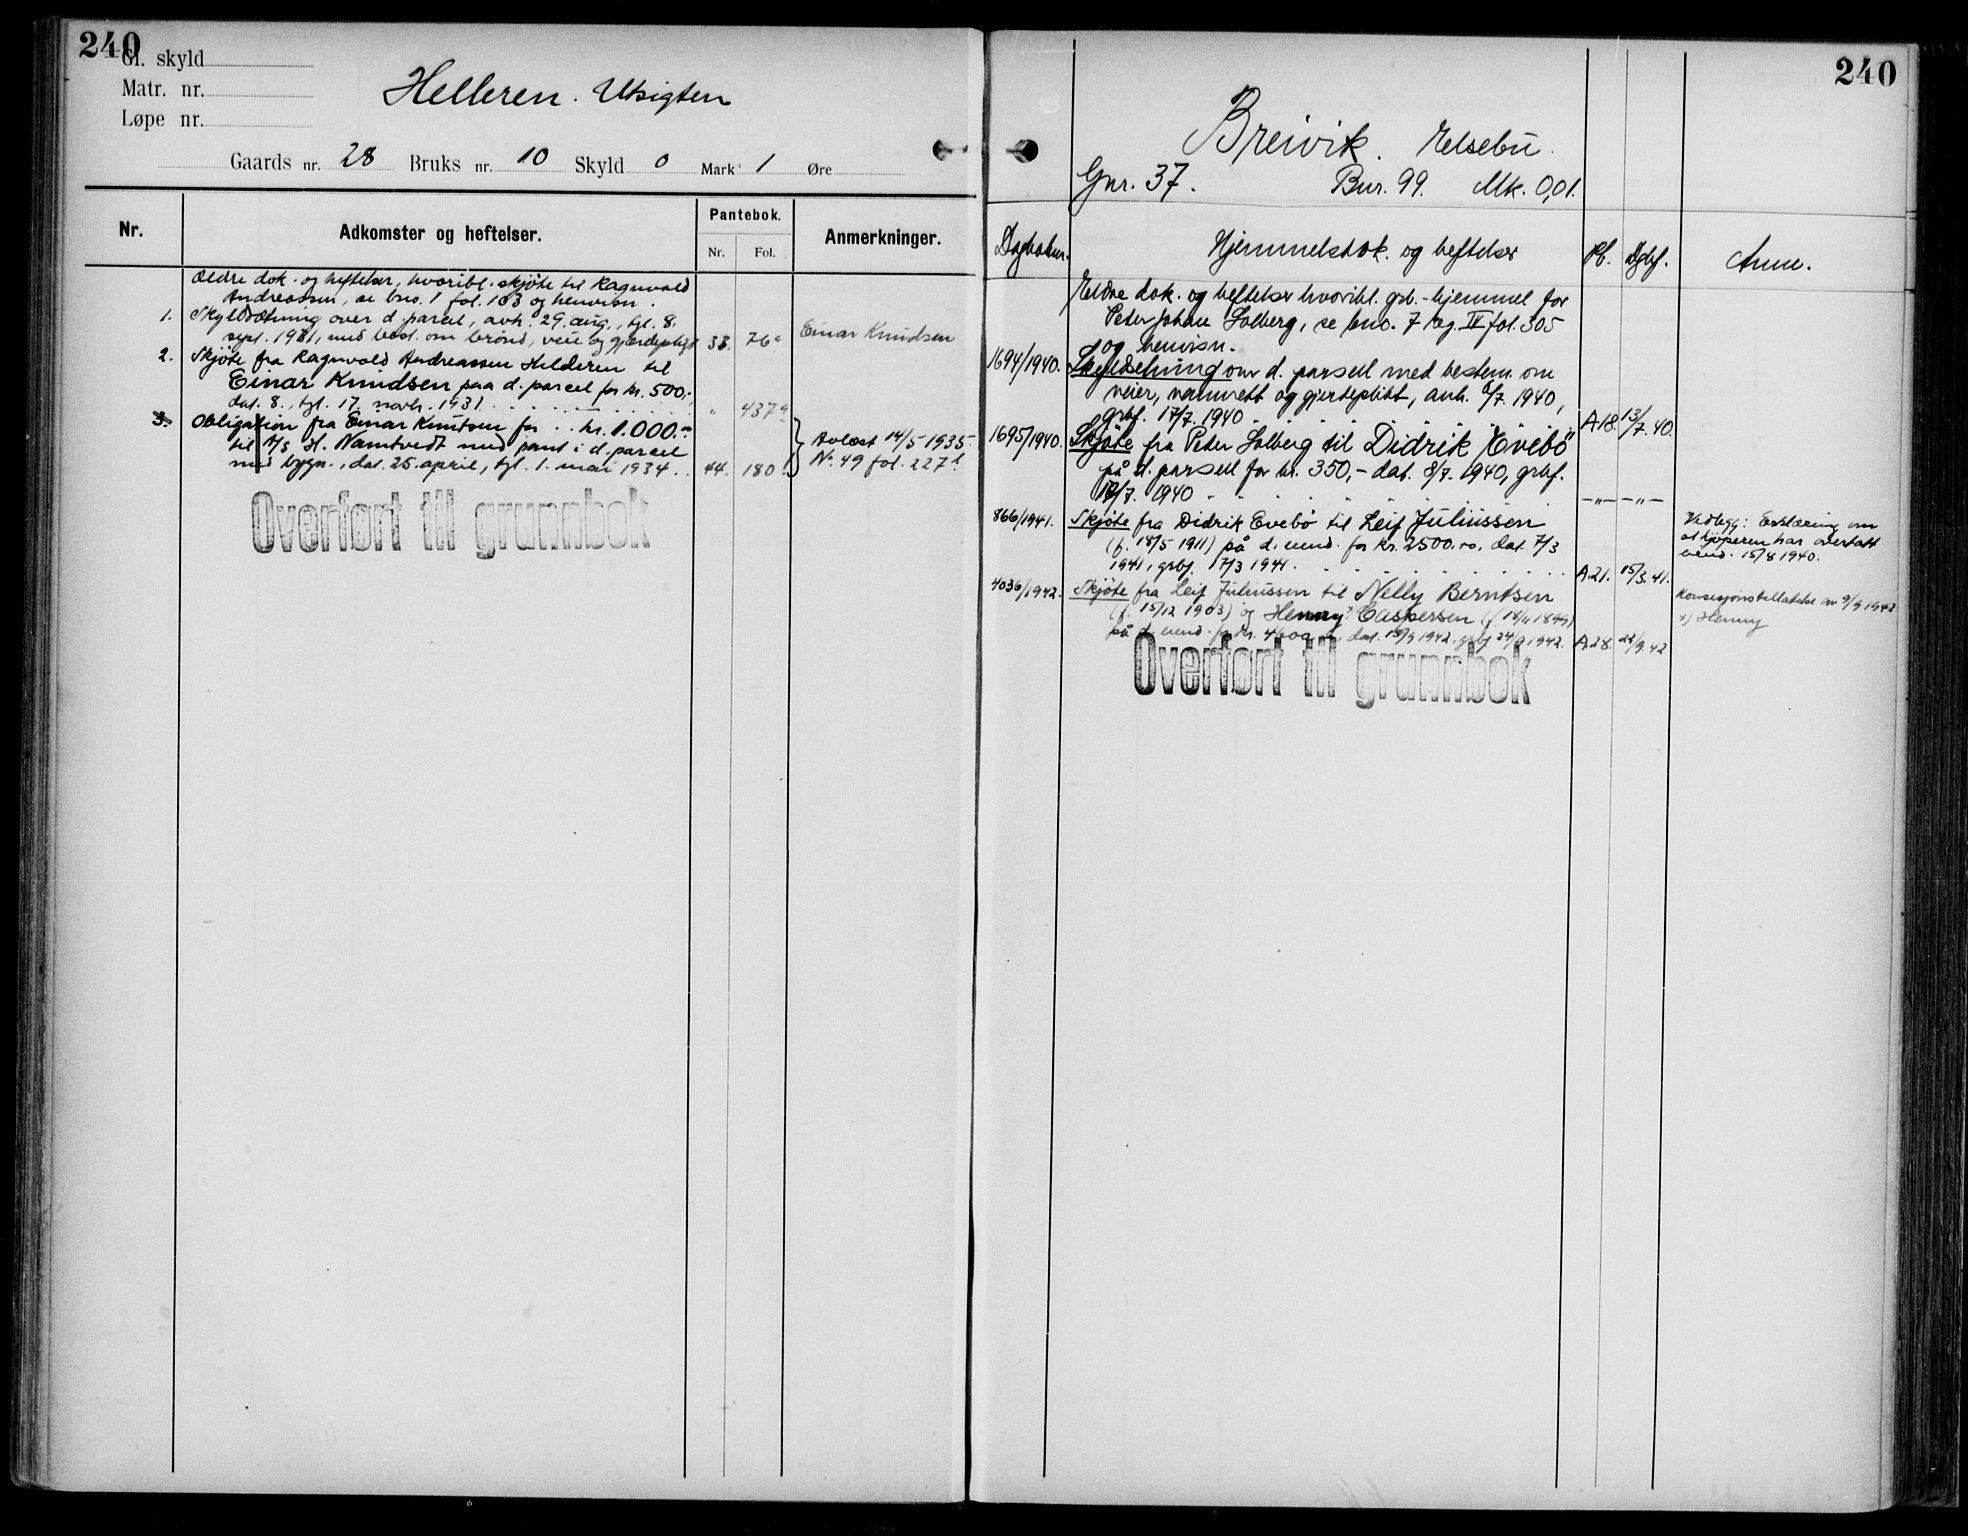 240
Gl. skyld
Matr. nr.
Løpe nr.
Helleren. Utsigten
Gaards nr. 28 Bruks nr. 10 Skyld 0 Mark 1 Øre
Nr. Adkomster og heftelser. Pantebok. Anmerkninger.
Nr. Fol.
Ældre dok. og heftelser, hvoribl. skjöte til Ragnvald
Andreassen, se bno. 1 fol. 183 og henvisn.
1. Skyldsætning over d. parcel, avh. 29. aug., tgl. 8.
sept. 1931, med best. om brönd, veie og gjærdepligt 38. 76 Einar Knudsen
2. Skjöte fra Ragnvald Andreassen Helderen til
Einar Knudsen paa d. parcel for kr. 500,-
dat. 8., tgl. 17. novbr. 1931 . . . " 437
3. Obligation fra Einar Knutsen for . . kr. 1.000.-
til A/S H. Namtvedt med pant i d. parcel
med bygn., dat. 25. april, tgl. 1. mai 1934 . . 44. 180
Avlæst 14/5 1935.
No. 49 fol. 227
Overført til grunnbok
240
Breivik. Elsebu.
Gnr. 37. Bnr. 99. Mk. 0,01.
Dagboknr. Hjemmelsdok. og heftelser Pb. Dgbf. Anm.
Eldre dok. og heftelser hvoribl. grb.-hjemmel for
Peter Johan Solberg, se bno. 7 reg. IV fol. 305
og henvisn.
1694/1940. Skyldsetning over d. parsell med bestem. om
veier, vannrett og gjerdeplikt, avh. 6/7. 1940,
grbf. 17/7. 1940 . . . A.18. 13/7. 40.
1695/1940. Skjöte fra Peter Solberg til Didrik Evebö
på d. parsell for kr. 350,- dat. 8/7. 1940, grbf.
18/7. 1940 . . . —"— —"—
866/1941. Skjöte fra Didrik Evebö til Leif Juliussen
(f. 18/5 1911) på d. eiend. for kr. 2500.00, dat. 7/3
1941, grbf. 17/3 1941. . . . A.21. 15/3. 41.
Vedlegg: Erklæring om
at kjöperen har overtatt
eiend. 15/8 1940.
4036/1942. Skjöte fra Leif Juliussen til Nelly Berntsen
(f. 15/12 1903) og Henny Caspersen (f. 14/11 1899)
på d. eiend. for kr. 4600 dat. 15/9 1942. grbf. 24/9 1942. A.28. 22/9. 42
Konsesjonstillatelse av 9/9 1942
x) Henny
Overført til grunnbok